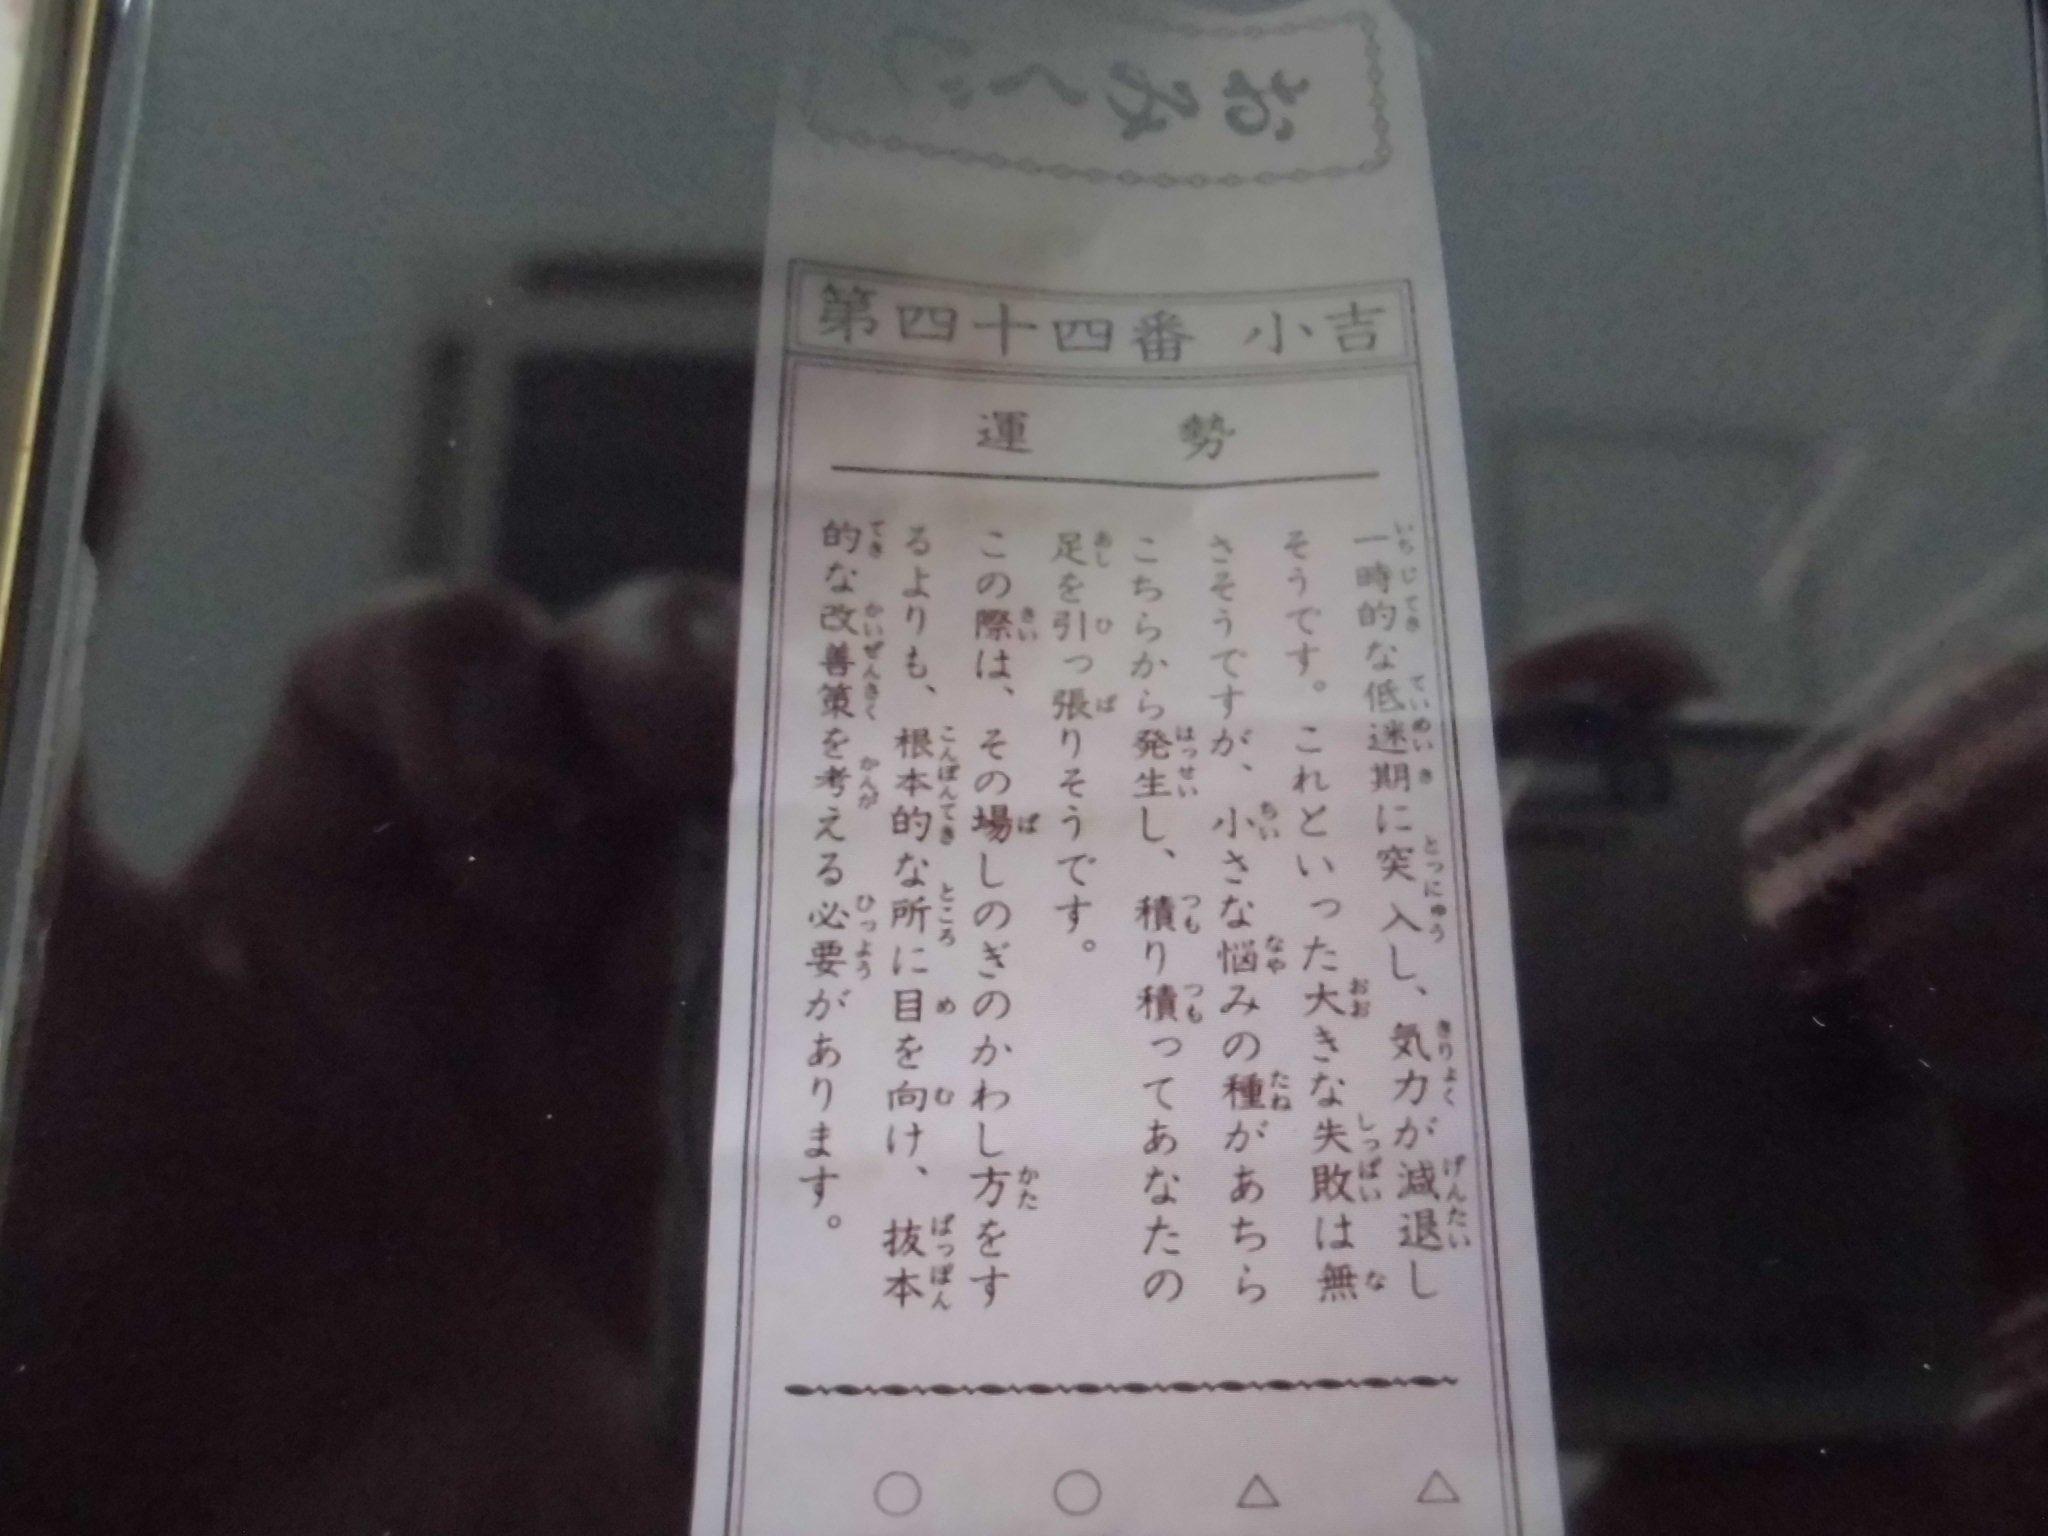 おみくじ
第四十四番 小吉
運勢
一時的な低迷期に突入し、気力が減退し
そうです。これといった大きな失敗は無
さそうですが、小さな悩みの種があちら
こちらから発生し、積り積ってあなたの
足を引っ張りそうです。
この際は、その場しのぎのかわし方をす
るよりも、根本的な所に目を向け、抜本
的な改善策を考える必要があります。
△ △ ○ ○